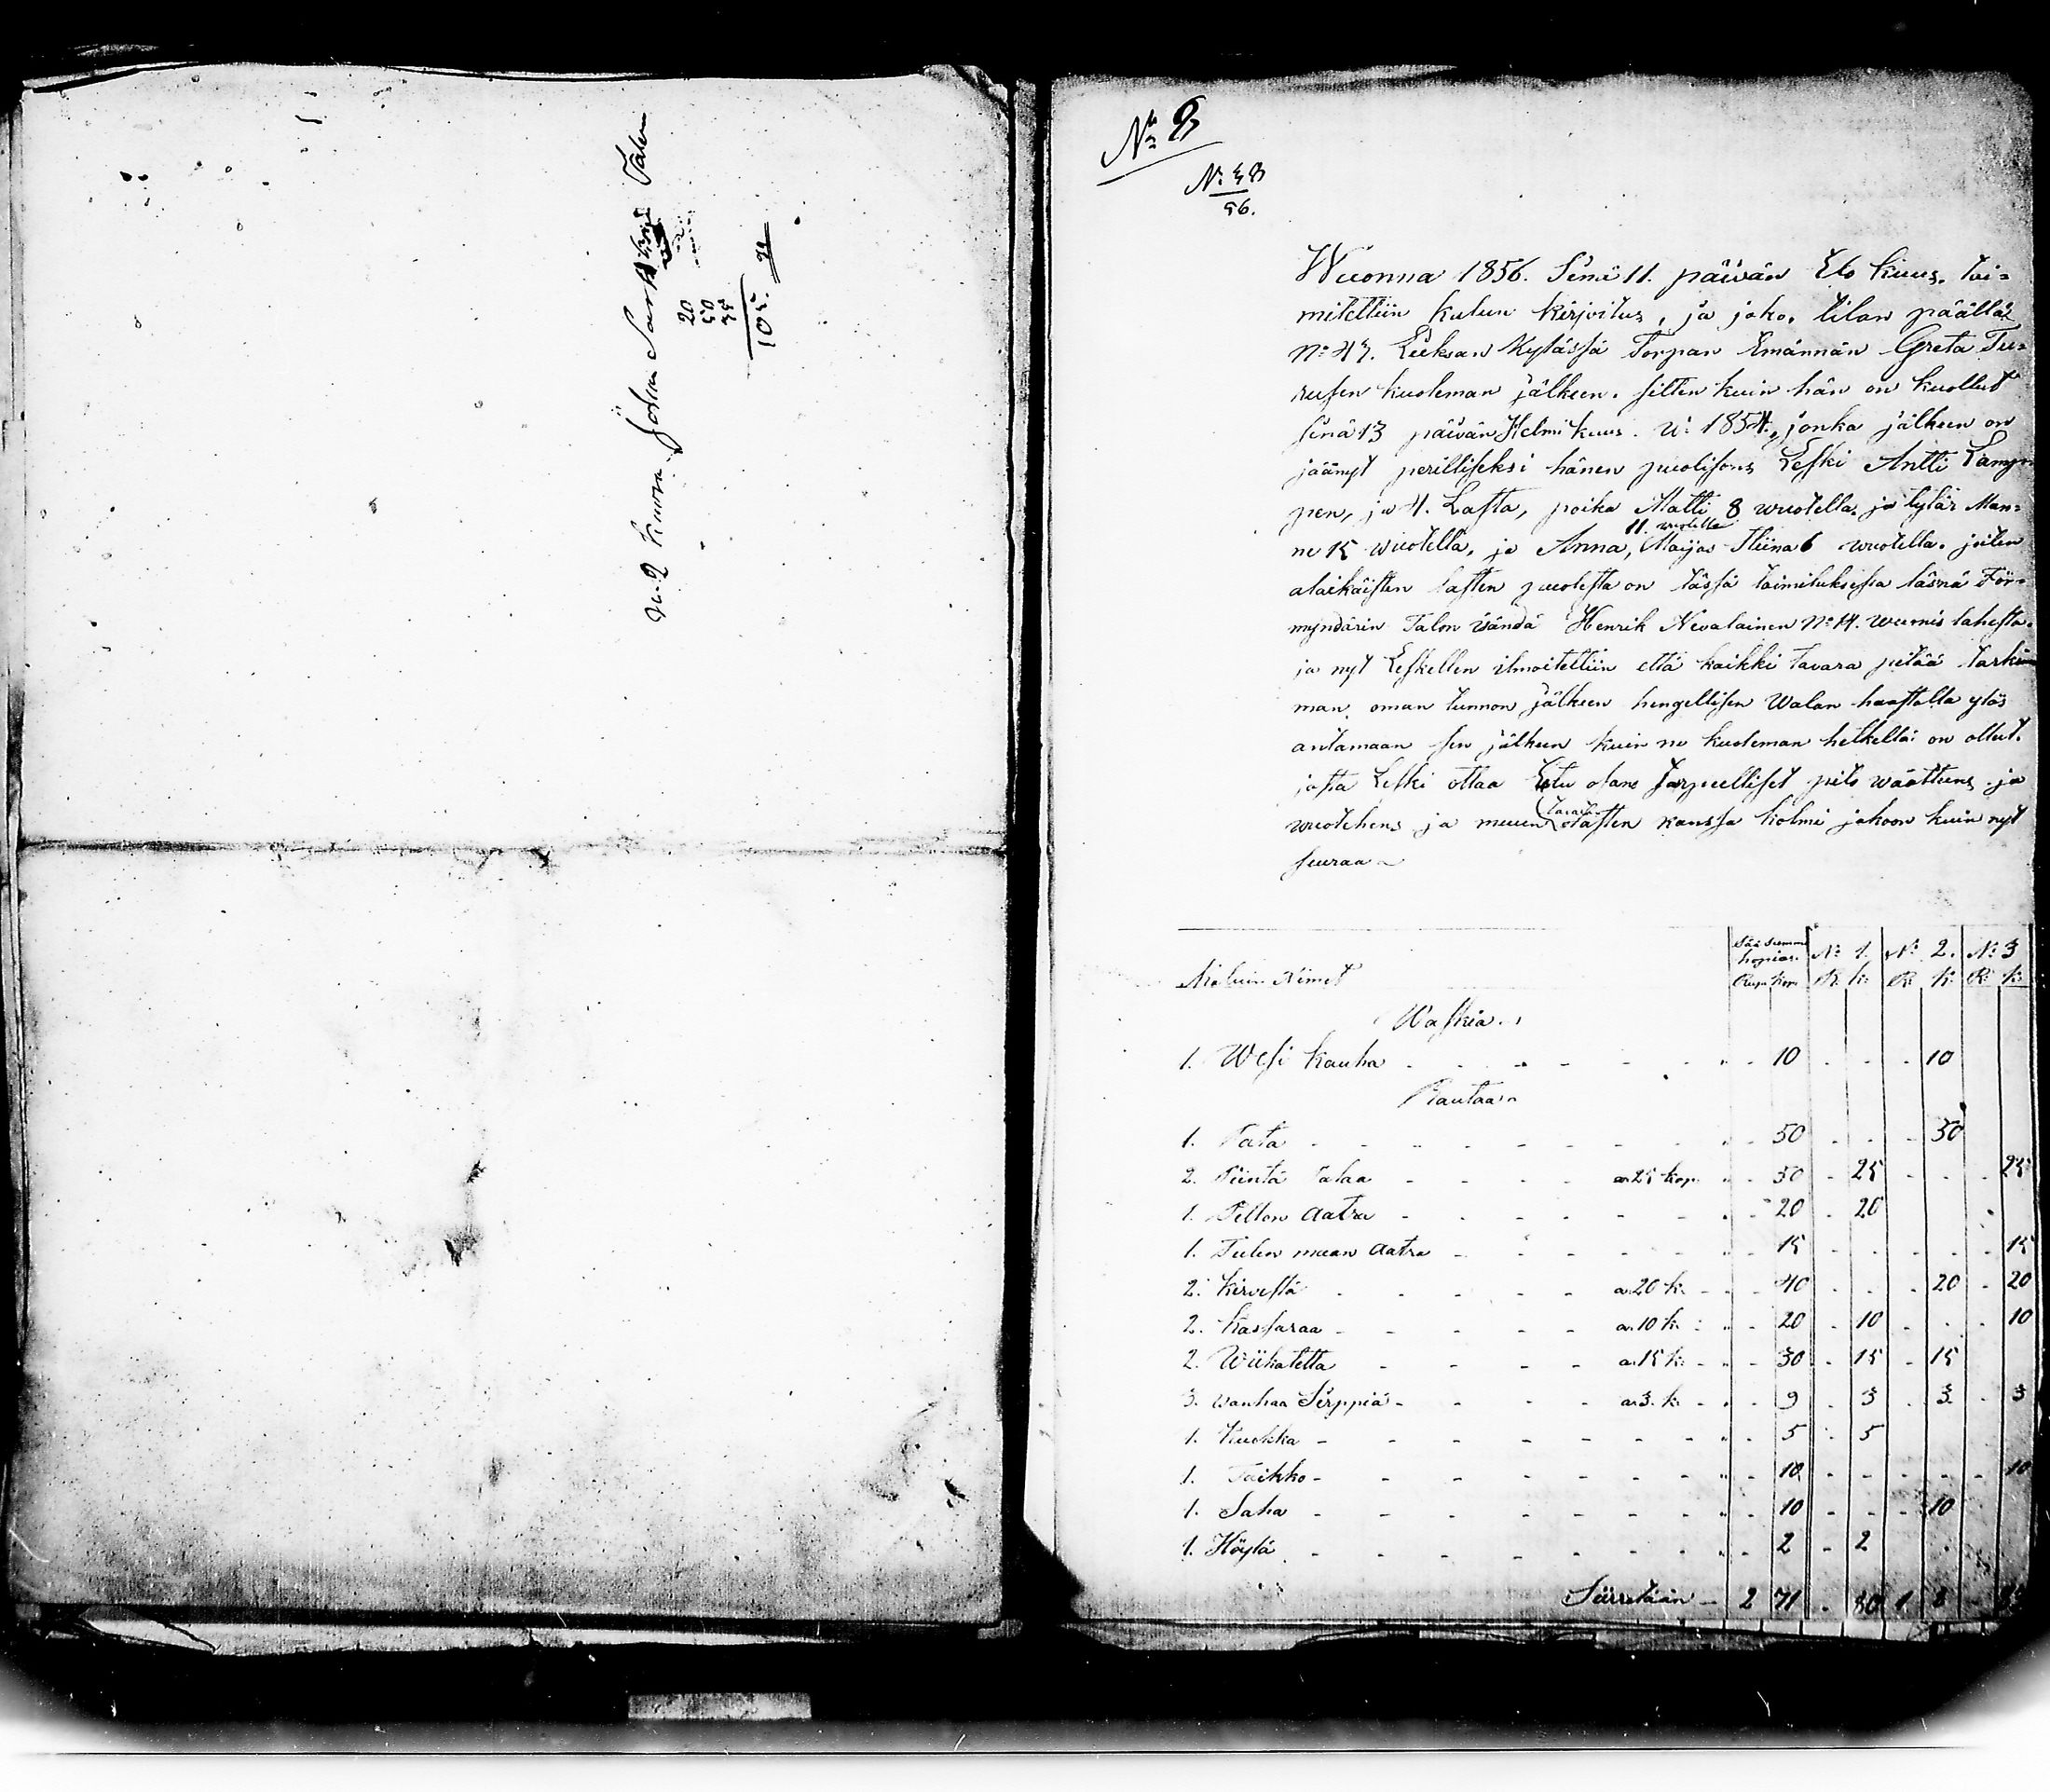 N:o 2 Johan
20
50
35
105.
No 9
N: 48
56.
Wuonna 1856. Sinä 11. päivän Elo Kuus. toi=
mitettiin kalun kirjoitus, ja jako, tilan päällä
No 47. Lieksan Kylässä Torpan Emännän Greta Tu=
rusen kuoleman jälkeen. sillen kuin hän on kuollut
sinä 13 päivän Helmi kuus. w: 1854, jonka jälkeen on
jäänyt perilliseksi hänen puolisons Leski Antti Lamp
pen, ja 4. Lasta, poika Matti 8 wuotella. ja tytär Man=
ne 15 wuotella, ja Anna, 11. wuotella Maija Stiina 6 wuotella. joiten
alaikäisten lasten puolesta on tässä toimituksessa läsnä För=
myndärin Talon isändä Henrik Nevalainen No 14. wiemis lahesta.
ja nyt Leskellen ilmoitettiin että kaikki tavara pitää tarkim
man oman tunnon jälkeen hengellisen Walan haastolla ylös
antamaan sen jälkeen kuin ne kuoleman hetkellä on ollut.
josta Leski ottaa Etu osans tarpeelliset pito waatteens ja
wuotehens ja muun tavaran lasten kanssa kolmi jakoon kuin nyt
seuraa
Kaluin Nimet N: 1. N: 2. N: 3
Rup: Kop: R: k: R: k: R: k:
Waskia.
1. Wesi kauha - - 10 - - - 10
Rautaa
1. Pata - - 50 - - - 50
2. Pientä pataa - a 25 kop - 50 - 25 - - - 25
1. Pellon aatra - - 20 - 20
1. Tulen maan aatra - - 15 - - - 15
2. Kirvestä - a 20 k: - 40 - - - 20 - 20
2. Kassaraa - a 10 k: - 20 - 10 - - - 10
2. Wiikatetta - a 15 k: - 30 - 15 - 15
3. wanhaa Sirppiä - a 3. k: - 9 - 3 - 3 - 3
1. Kuokka - - 5 - 5
1. Taikko - - 10 - - - 10
1. Saha - - 10 - - - 10
1. Höylä - - 2 - 2
Siirretään - 2 71 - 80 1 8 -